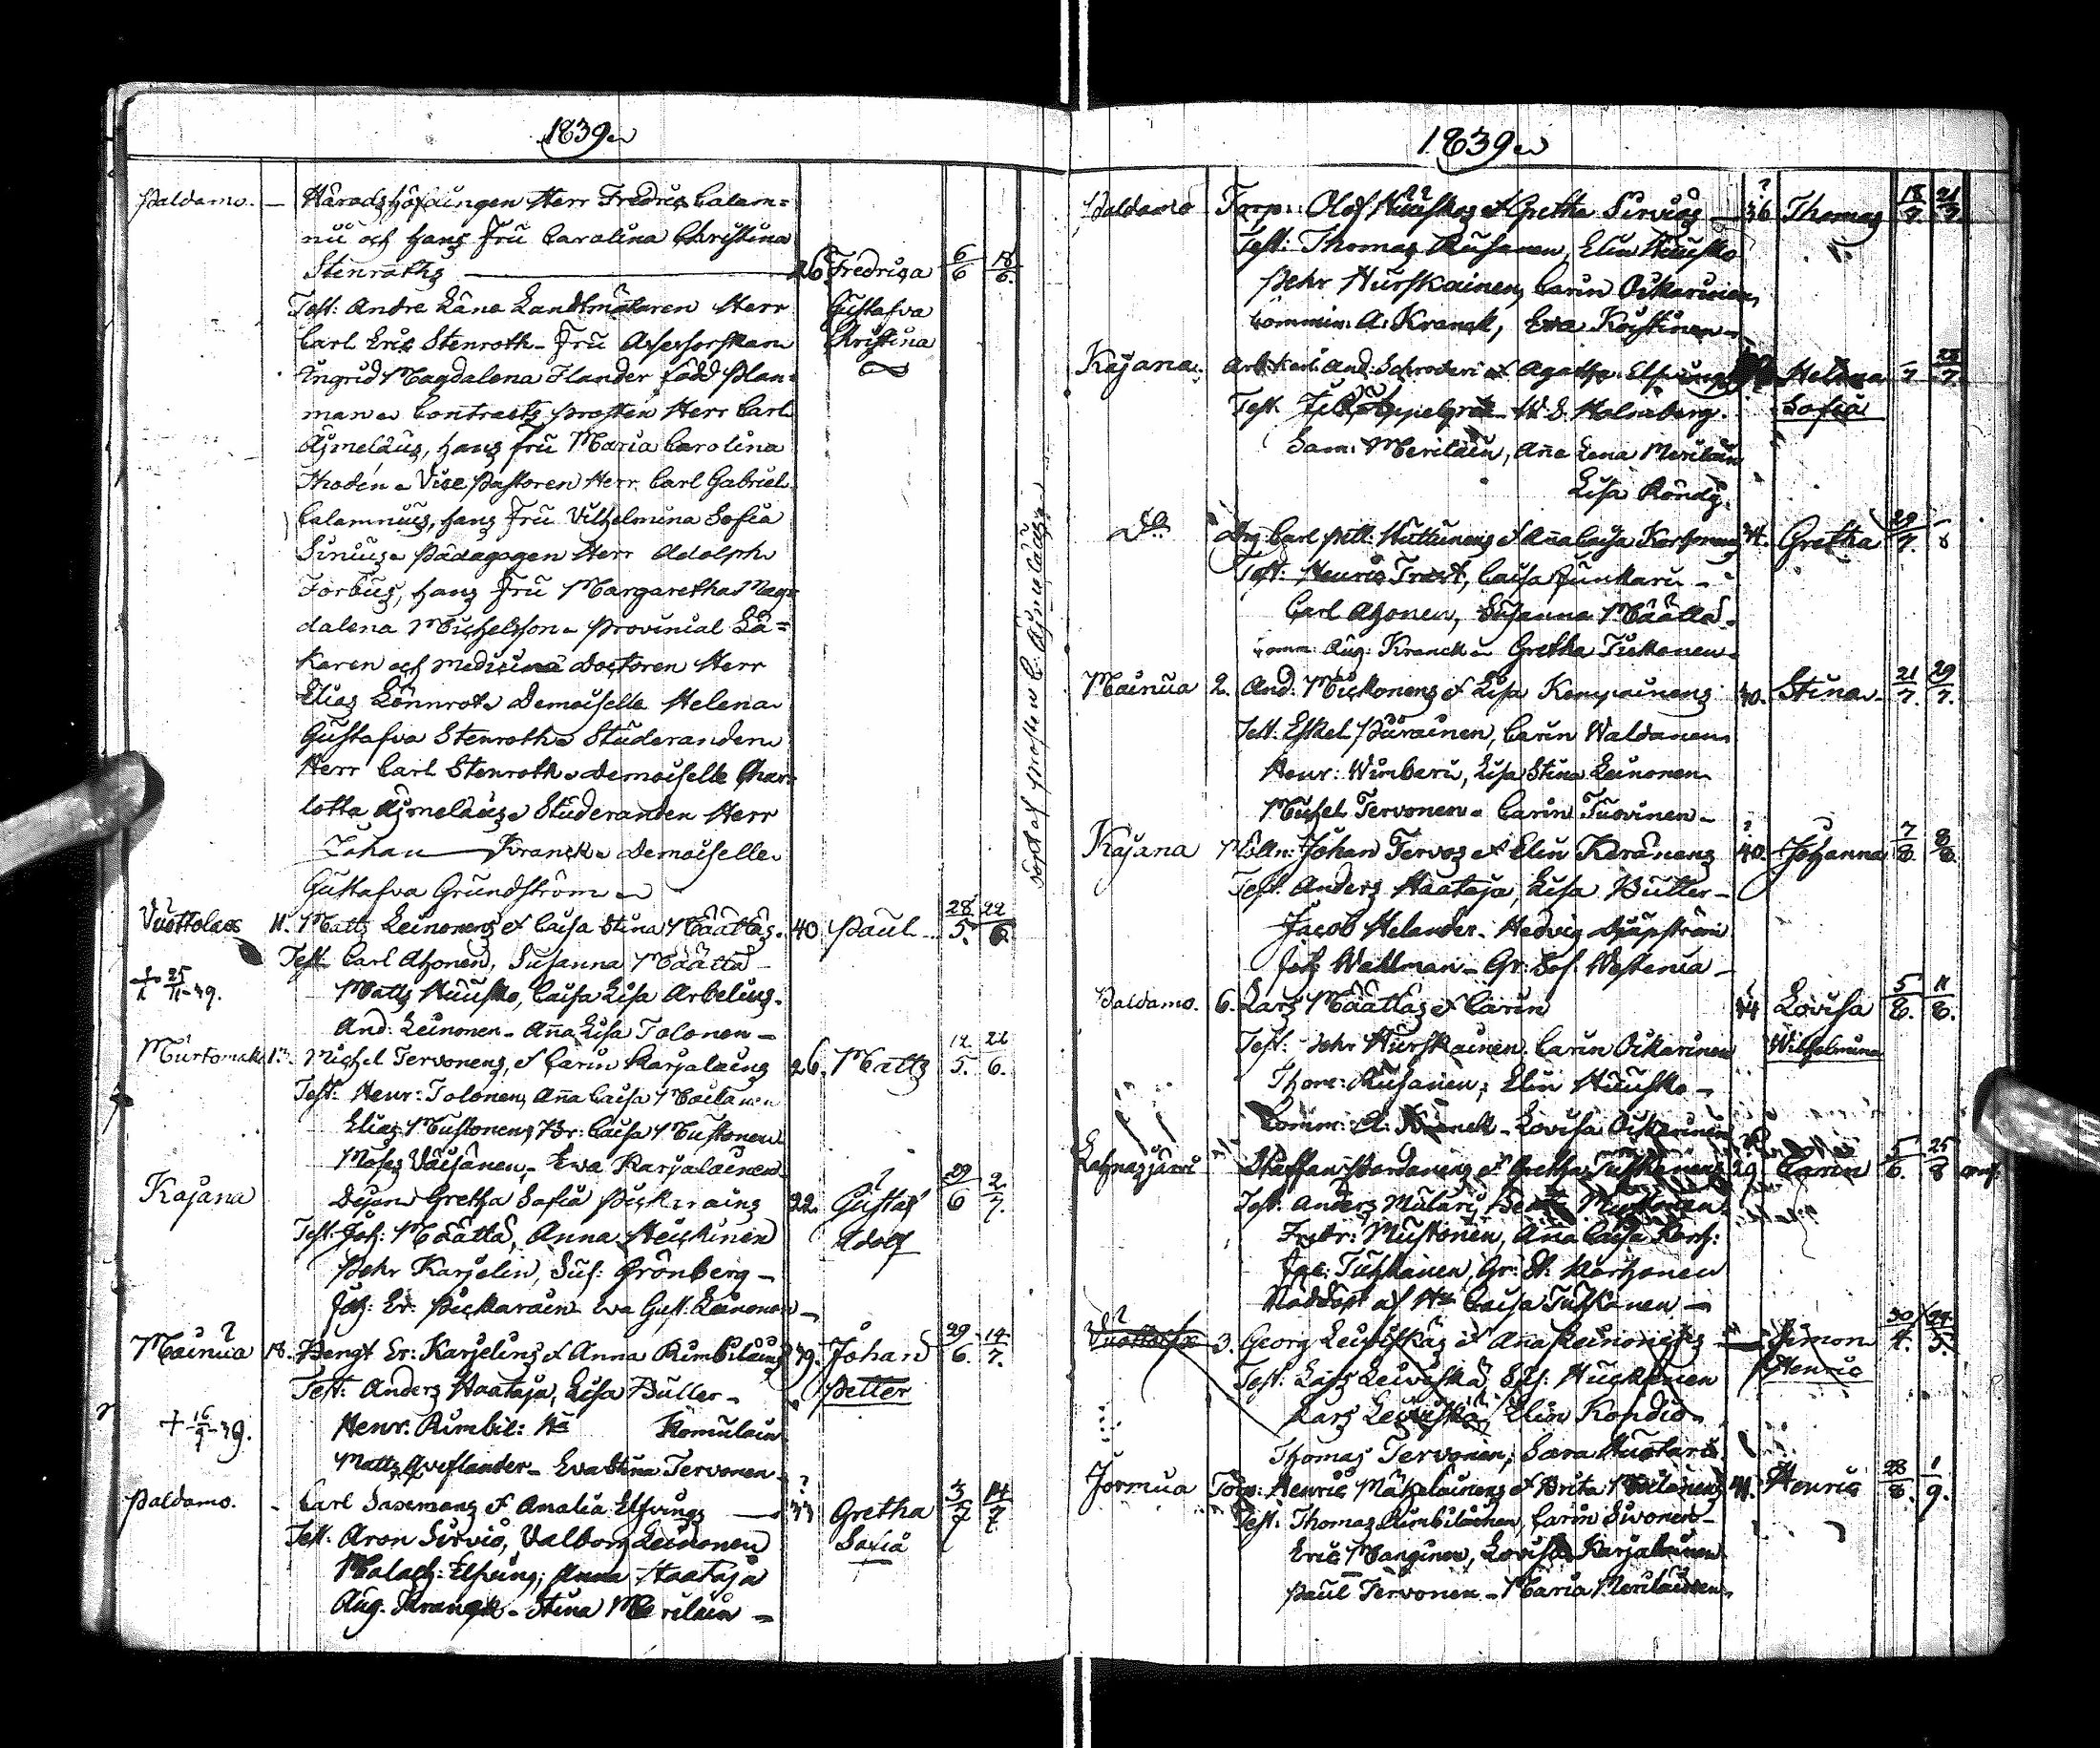 1839
Paldamo. — Häradshöfdingen Herr Fredric Calam=
nii och hans Fru Carolina Christina
Stenroths — 26. Fredrica 6/6 18/6.
Test: Andre Läne Landtmätaren Herr Gustafva
Carl Eric Stenroth - Fru Assessorskan Christina
Ingrid Magdalena Flander född Plan=
man - Contracts Prosten Herr Carl
Ajmelæus, hans fru Maria Carolina
Thodén - Vice Pastoren Herr Carl Gabriel
Calamnius, hans Fru Vilhelmina Sofia
Sirius - Pädagogen Herr Adolph
Forbus, hans Fru Margaretha Mag=
dalena Michelsson - Provincial Lä=
karen och Medicinæ Doctoren Herr
Elias Lönnrot - Demoiselle Helena
Gustafva Stenroth - Studeranden
Herr Carl Stenroth - Demoiselle Char=
lotta Ajmelæus - Studeranden Herr
Johan Kranck - Demoiselle
Gustafva Grundström
döpt af Prosten C. Ajmelæus
Vuottolax 11. Matts Leinonens & Caisa Stina Määttäs. 40 Paul 28/5. 22/6
Test Carl Ahonen, Susanna Määttä -
25/11-39. Matts Huusko, Caisa Lisa Arbelius.
And: Leinonen - Aña Lisa Tolonen -
Murtomäki 13. Michel Tervonens, & Carin Karjalains 26. Matts 12/5. 22/6.
Test: Henr: Tolonen, Aña Caisa Moilanen
Elias Mustonens Hr: Caisa Mustonen
Moses Väisänen, - Ewa Karjalainen
Kajana Pigan Gretha Sofia Pickarains 22. Gustaf 29/6 2/7.
Test: Joh: Määttä, Anna Heickinen Adolf
Pehr Karjelin, Sus: Grönberg -
Joh: Er: Pickarain - Eva Gust: Leinonen -
Mainua 18. Bengt Er: Karjelins & Anna Rimbiläins 39. Johan 29/6. 14/7.
Test: Anders Haataja, Lisa Buller - Petter
† 16/9-39. Henr: Rimbil: Ha Komulain
Matts Aveflander - Eva Stina Tervonen
Paldamo. - Carl Sasemans & Amalia Elfvings — 33 Gretha 3/7 14/7
Test: Aron Sirviö, Valborg Leinonen Sofia
Malach: Elfving, Anna Haataja
Aug. Kranck - Stina Merilain -
1839
Paldamo Torp: Olof Huuskos & Gretha Sirviös — 36 Thomas 18/7. 21/7.
Test: Thomas Rusanen, Elin Huusko
Pehr Hurskainen, Carin Oikarinen,
Commin: A: Kranck, Ewa Koistinen -
Kajana. Arb:karl: And: Schroderi & Agatha Elfvings Helena 7. 28/7.
Test. Appelgren - W. S. Holmberg. Sofia
Sam: Meriläin, Aña Lena Meriläin
Lisa Röndy.
Do Drg Carl Pett: Huttunens & Aña Caisa Korhonens 34. Gretha 29/7.
Test: Henric Trast, Caisa Junkari -
Carl Ahonen, Susanna Määttä.
Comm: Aug: Kranck - Gretha Tickanen.
Mainua 2. And: Mickonens & Lisa Kempainens 40. Stina - 21/7. 29/7.
Test. Eskel Pärainen, Carin Waldanen
Henr: Wimbari, Lisa Stina Leinonen
Michel Tervonen - Carin Tuovinen -
Kajana Mölln: Johan Tervos & Elin Keränens 40. Johanna 7/8. 8/8.
Test: Anders Haataja, Lisa Buller -
Jacob Helander - Hedvig Djupström
Joh Wallman - Gr: Sof: Westenia -
Paldamo. 6. Lars Määttäs & Carin 34 Lovisa 5/8. 11/8.
Test: Pehr Hurskainen, Carin Oikarinen Wilhelmina
Thom: Rusanen, Elin Huusko -
Comm: A: Kranck - Lovisa Oikarinen
Lahnasjärvi Staffan Pardanens & Gretha Tuhkanens 29 Carin 5/6. 25/8
Test. Anders Mulari, Mustonen.
Fredr: Mustonen, Aña Caisa Korh:
Jac: Tuhkanen, Gr: St: Korhonen
Nöddöpt af Ha Caisa Tuhkanen -
Vuottolax 3. Georg Leiviskäs & Aña Leinonens — Simon 30/4. 24/5.
Test: Lars Leiviskä, Heickinen Henric
Lars Leiviskä, Elin Kondio -
Thomas Tervonen, Sara Mustari
Jormua Torp: Henric Mähöläinens & Brita Moilanens 41. Henric 28/8. 1/9.
Test: Thomas Rimbiläinen, Carin Sivonen -
Eric Manginen, Lovisa Karjalainen
Paul Tervonen - Maria Meriläinen,